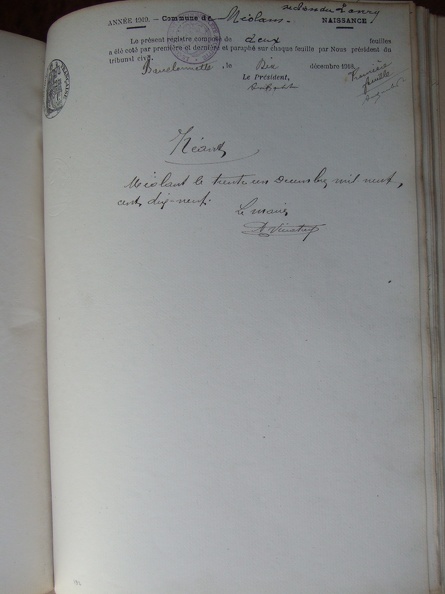 ANNÉE 1919. — Commune de Méolans.
NAISSANCE
Le présent registre composé de deux feuilles
a été coté par première et dernière et paraphé sur chaque feuille par Nous président du
tribunal civil.
Barcelonnette, le Dix décembre 1918.
Le Président,
Première
feuille
Néant
Méolans le trente un Décembre mil neuf
cent dix-neuf.
Le maire